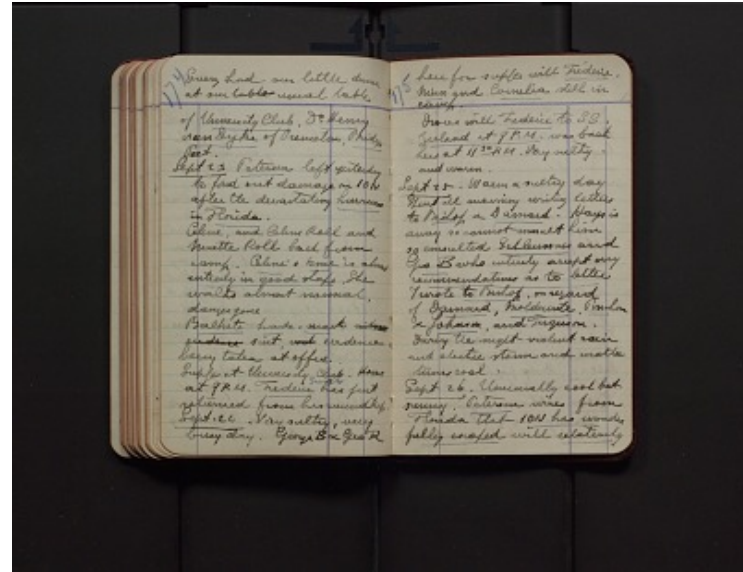 174
our little dinner
at our table usual table
of University Club, Dr Henry
van Dyke of Princeton,
Sept 23 Paterson left yesterday
to find out damage on 10N
after the devastating hurricane
in Florida.
Celine, and Celine Roll and
Ninette Roll back from
camp. Celine's knee is almost
entirely in good shape. She
walks almost normal,
danger gone
evidence
being taken at office.
Supper at University Club. Home
at 9 P.M. Frederic has just
returned from his
Sept. 24. Very sultry, very
busy day. George B & Geo R
175
here for supper with Frederic.
and Cornelia still in
camp.
Drove with Frederic to S.S.
Zeeland at 9 P.M. was back
here at 11 30 P.M. Very sultry
and warm.
Sept 25. Warm & sultry day
Spent all morning writing letters
to & Barnard. Hays is
away so cannot consult him
so consulted and
Geo B who entirely accept my
recommendations as to letter
I wrote to in regard
of Barnard,
& Johnson, and Ferguson.
During the night violent rain
and electric storm and weather
turns cool.
Sept 26. Unusually cool but
sunny. Paterson wires from
Florida that 10N has wonder
fully escaped with relatively